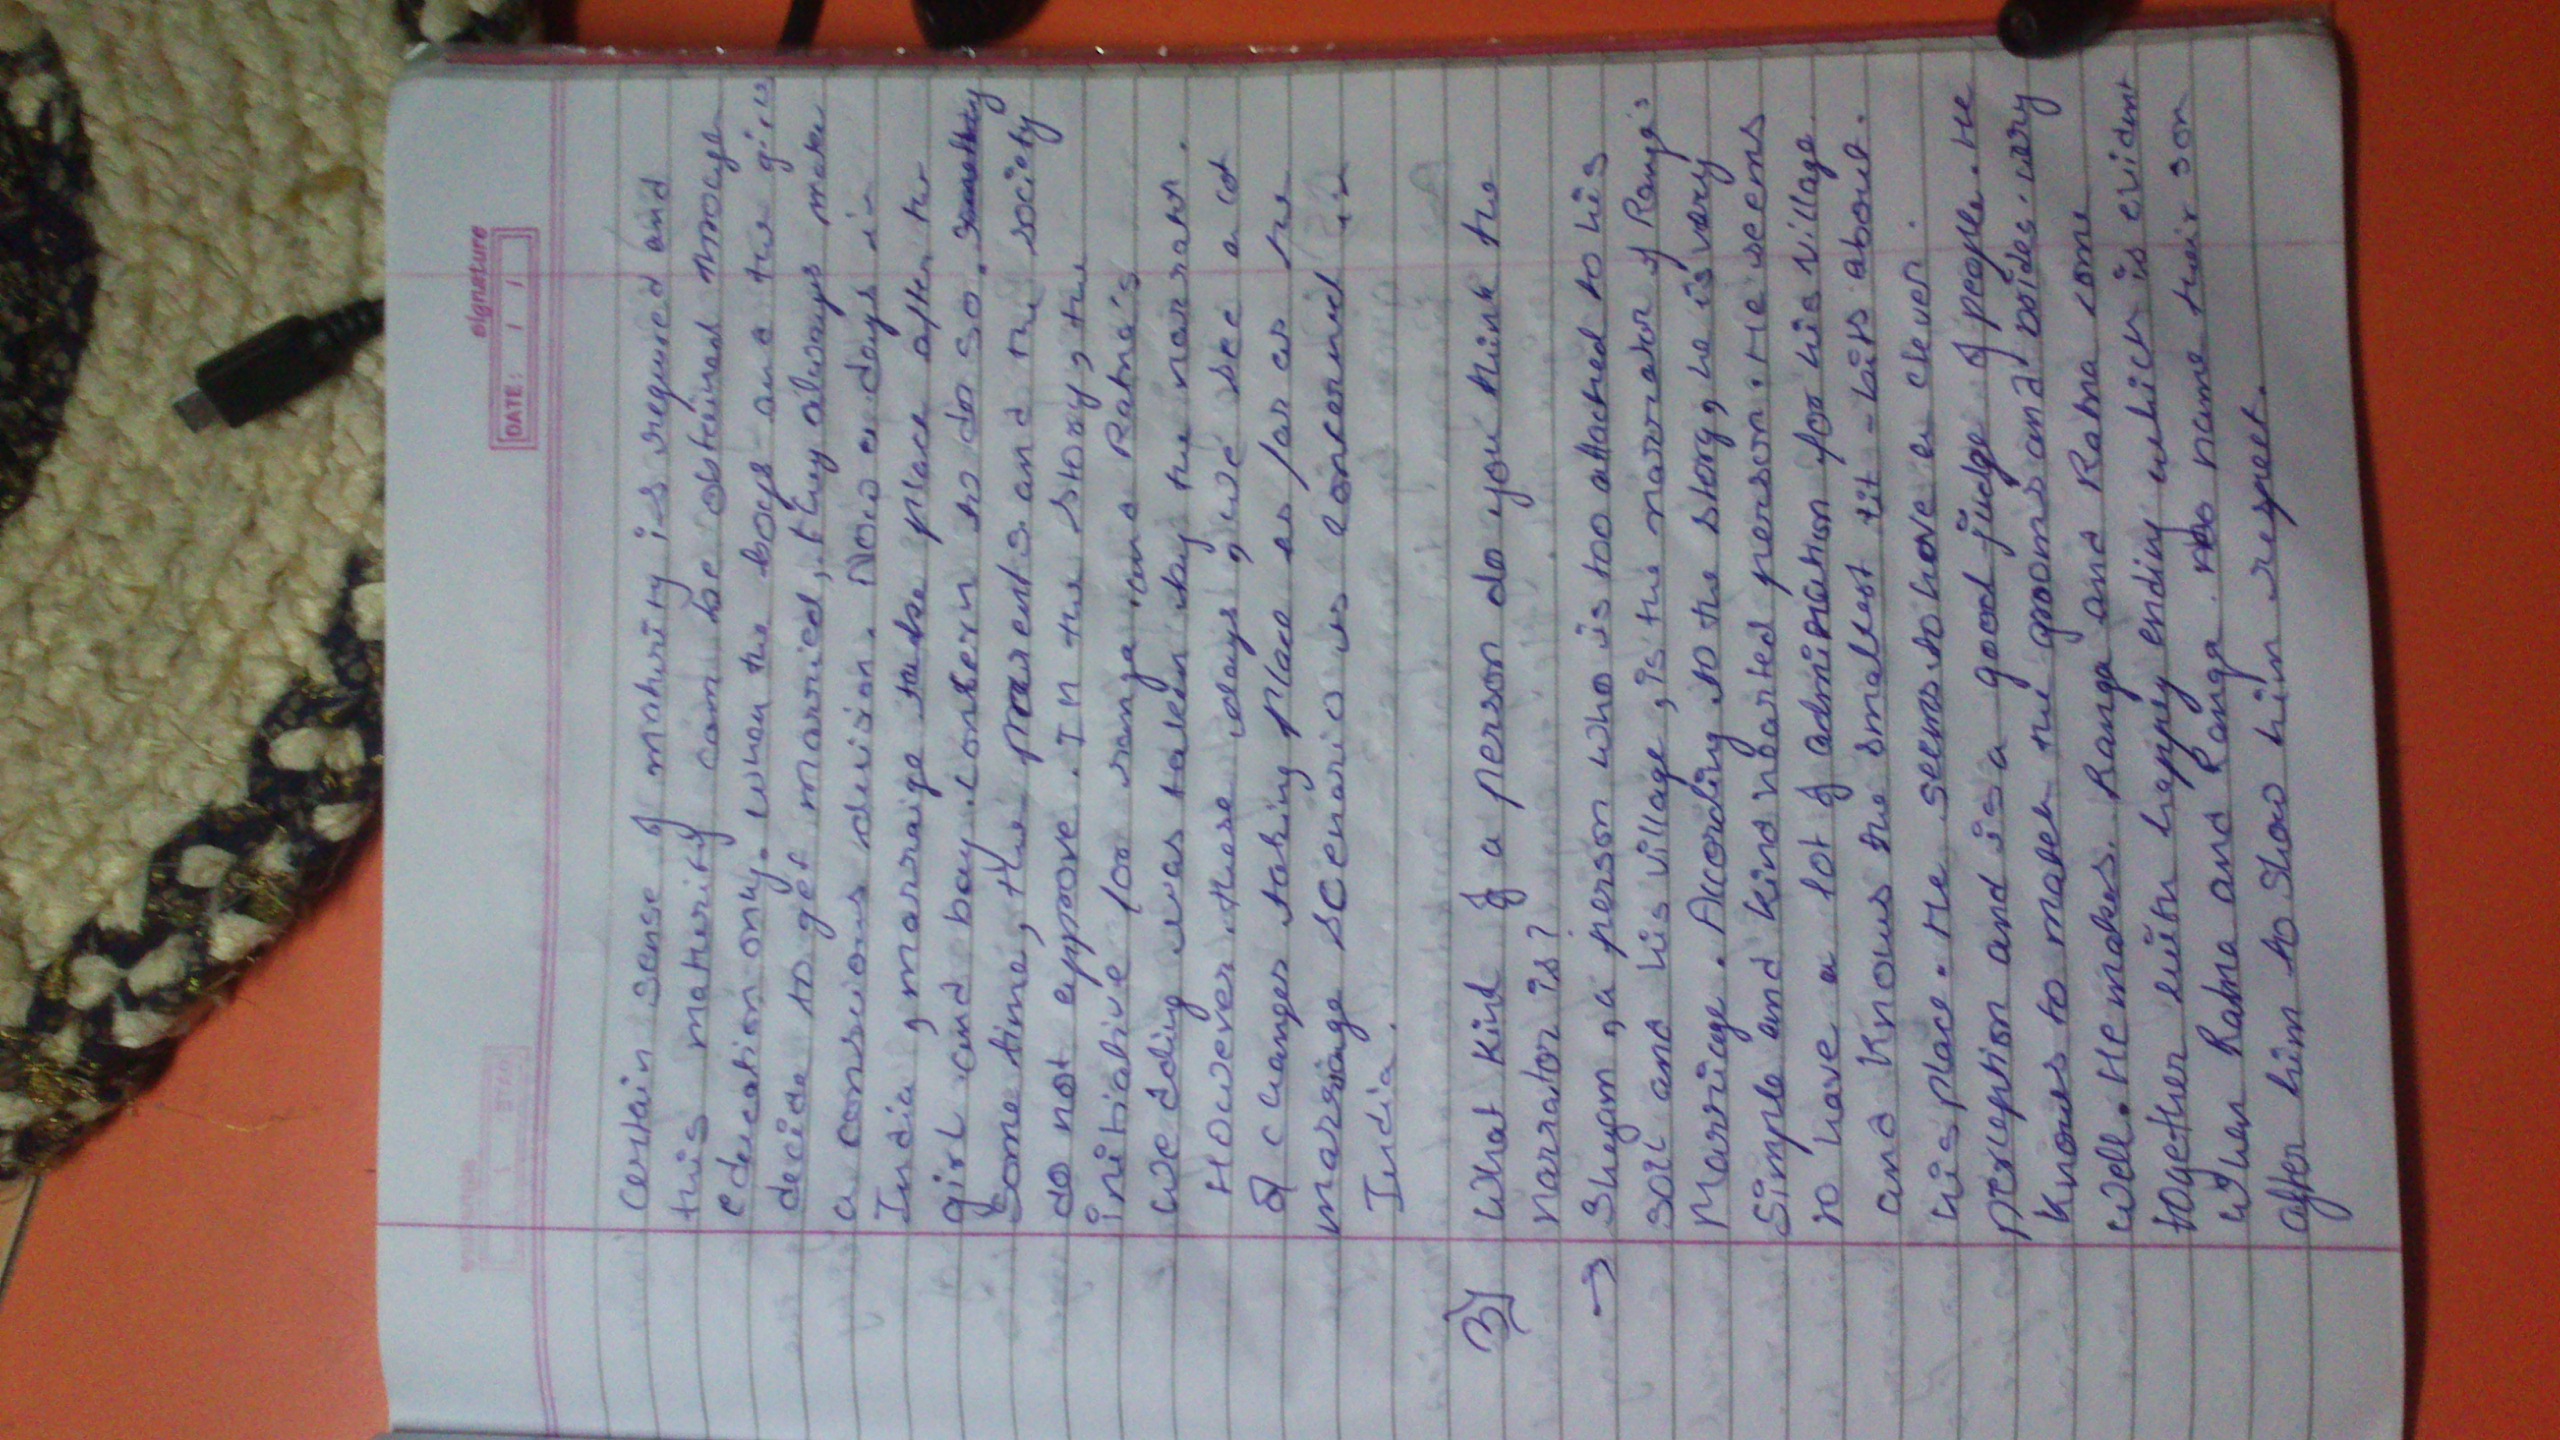 signature
DATE: / /
certain sense of maturity is required and
this maturity can be obtained through
education only. When the boys and the girls
decide to get married, they always make
a conscious decision. Now a days in
India, marraige take place after the
girl and boy concern to do so. Something
some time, the parents and the society
do not approve. In the story, the
initiative for ranga and Ratna's
wedding was taken by the narrator.
However these days, we see a lot
of changes taking place as far as the
marriage scenario is concerned in
India.
3) What kind of a person do you think the
narrator is?
→ Shyam, a person who is too attached to his
soil and his village, is the narrator of Ranga's
Marriage. According to the story, he is very
simple and kind hearted person. He seems
to have a lot of admiration for his village
and knows the smallest tit-bits about
his place. He seems to have a clever
perception and is a good judge of people. He
knows to match the grooms and brides very
well. He makes Ranga and Ratna come
together with happy ending which is evident
when Ratna and Ranga name their son
after him to show him respect.